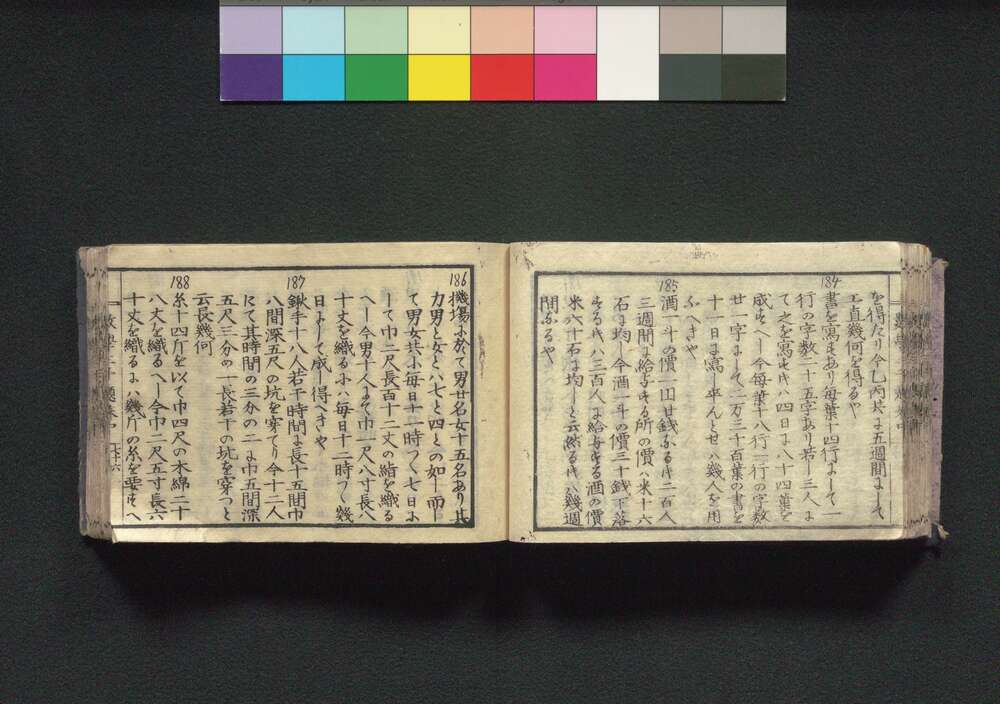 を得たり今乙丙共に五週間にして
工直幾何を得るや
184
書を寫すあり毎葉十四行にして一
行の字数二十五字あり若し三人に
て之を寫すれハ四日に八十四葉を
成すへし今毎葉十八行一行の字数
廿一字にして二万三十百葉の書を
十一日に寫し卒んとせハ幾人を用
ふへきや
185
酒一斗の價一山廿銭なるれハ二百人
三週間に給与する所の價ハ米十六
石に均し今酒一斗の價三十銭下落
するれハ三百人に給与する酒の價
米六十石に均しと云然るれハ幾週
間なるや
186
機場に於て男廿名女十五名あり其
力男と女とハ七と四との如し而し
て男女共に毎日十一時つゝ七日に
して巾二尺長百十二丈の絹を織る
へし今男十人にて巾一尺八寸長八
十丈を織るにハ毎日十二時つゝ幾
日にして成し得へきや
187
鍬手十八人若干時間に長十五間巾
八間深五尺の坑を穿てり今十二人
にて其時間の三分の二に巾五間深
五尺三分の一長若干の坑を穿つと
云長幾何
188
糸十四斤を以て巾四尺の木綿二十
八丈を織るへし今巾二尺五寸長六
十丈を織るにハ幾斤の糸を要すへ